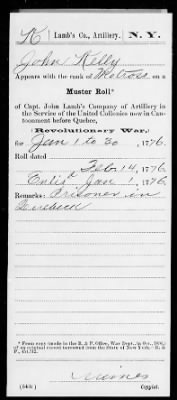 K | Lamb's Co., Artillery. | N. Y.
John Kelly
Appears with the rank of Matross on a
Muster Roll*
of Capt. John Lamb's Company of Artillery in
the Service of the United Collonies now in Can-
tonment before Quebec,
(Revolutionary War,)
for Jan 1 to 30, 1776.
Roll dated
Feb 14, 1776.
Enlis'd Jan 1, 1776.
Remarks: Prisoner in
Quebeck
* From copy (made in the R. & P. Office, War Dept.,
an original record borrowed from the State of New York.
(543)
Copyist.